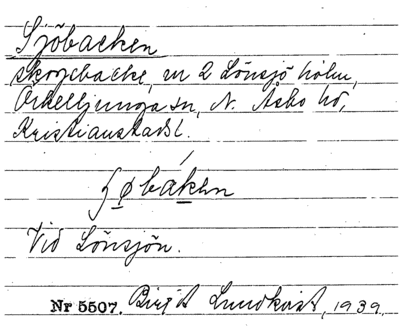 Sjöbacken
skogsbacke, nr 2 Lönsjö holm,
Örkelljunga sn, N. Åsbo hd,
Kristianstads l.
Vid Lönsjön.
Nr 5507. Birgit Lundkvist, 1939.